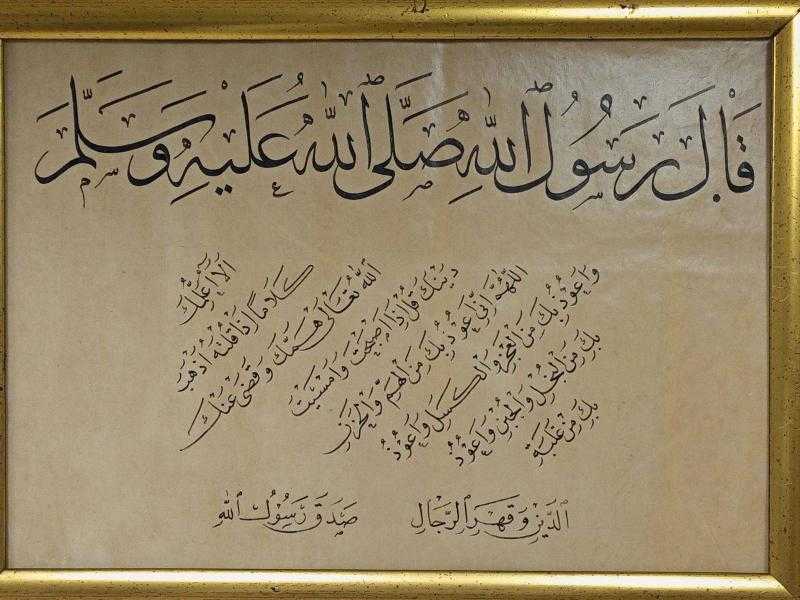 قَالَ رَسُولُ اللهِ صَلَّى اللهُ عَلَيْهِ وَسَلَّمَ
اَلَا اُعَلِّمُكَ
كَلَامًا اِذَا قُلْتَهُ اَذْهَبَ
اللهُ تَعَالَى هَمَّكَ وَقَضَى عَنْكَ
دَيْنَكَ قُلْ اِذَا اَصْبَحْتَ وَاَمْسَيْتَ
اَللّٰهُمَّ اِنِّي اَعُوذُ بِكَ مِنَ الْهَمِّ وَالْحَزَنِ
وَاَعُوذُ بِكَ مِنَ الْعَجْزِ وَالْكَسَلِ وَاَعُوذُ
بِكَ مِنَ الْبُخْلِ وَالْجُبْنِ وَاَعُوذُ
بِكَ مِنْ غَلَبَةِ
الدَّيْنِ وَقَهْرِ الرِّجَالِ
صَدَقَ رَسُولُ اللهِ